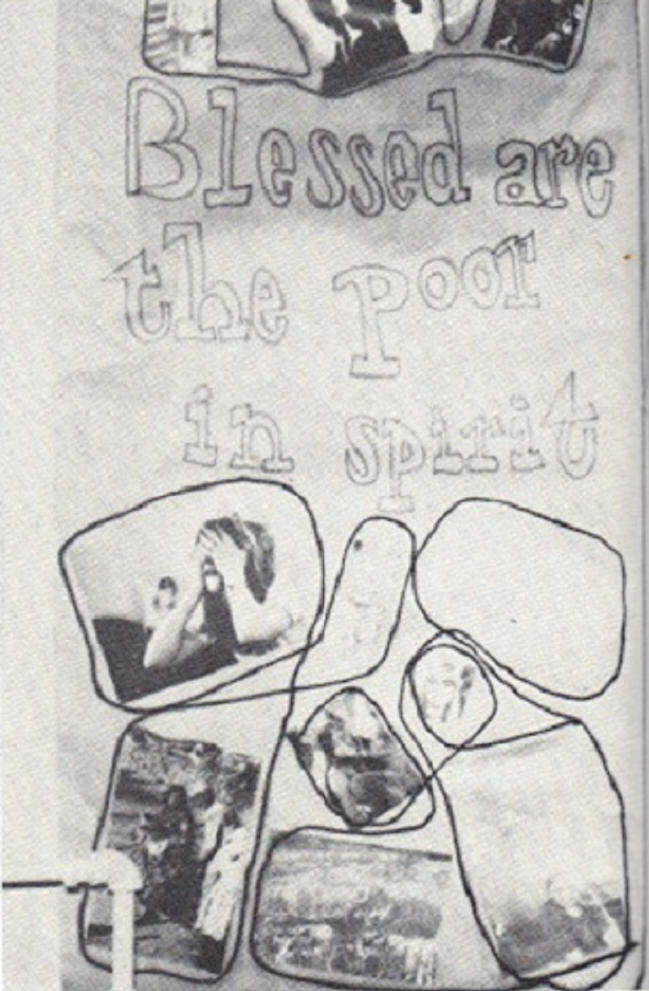 Blessed are
the poor
in spirit